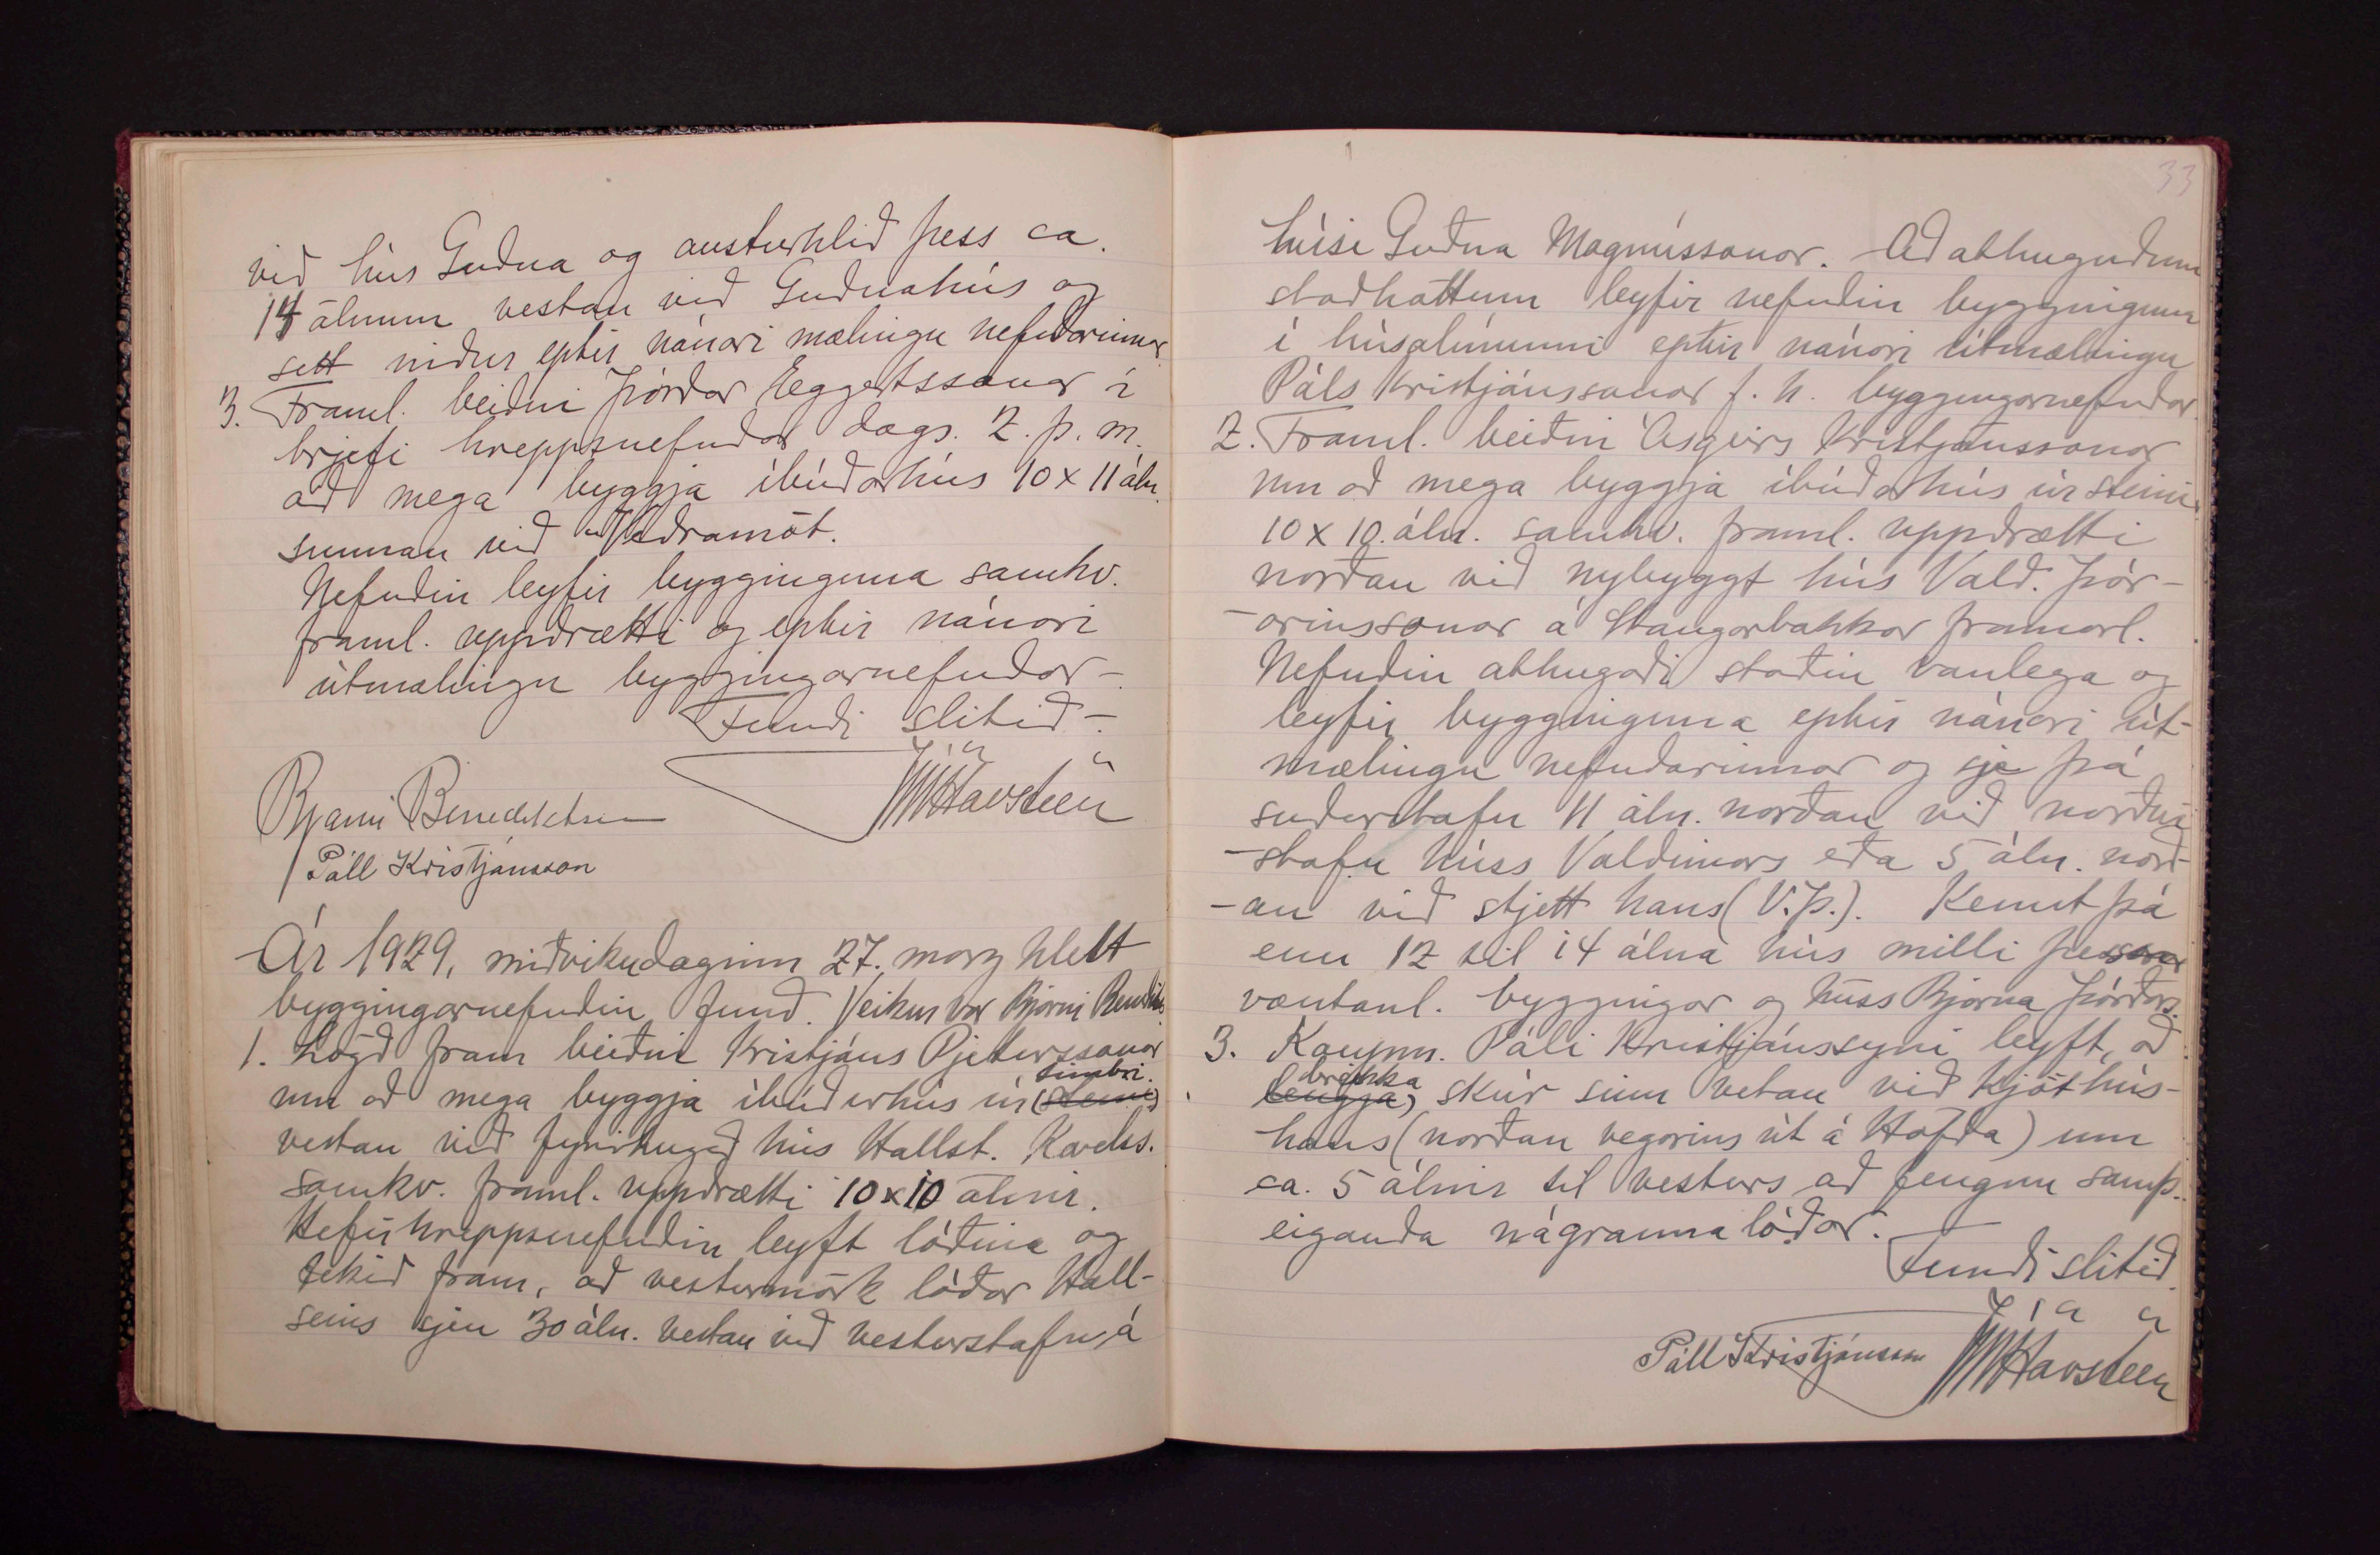 við hús Guðna og austurhlið þess ca.
14 álnum vestan við Guðnahús og
sett niður eptir nánari mælingu nefndarinnar
3. Framl. beiðni Þórðar Eggertssonar í
brjefi hreppsnefndar dags. 2. þ. m.
að mega byggja íbúðarhús 10 x 11 áln.
sunnan við Veðramót.
Nefndin leyfir bygginguna samkv.
framl. uppdrætti og eptir nánari
útmælingu byggingarnefndar -
Fundi slitið -
JúlHavsteen
Bjarni Benediktsson
Páll Kristjánsson
Ár 1929, miðvikudaginn 27. marz hlelt
byggingarnefndin fund. Veikur var Bjarni Benedikts
1. Lögð fram beiðni Kristjáns Pjeturssonar
um að mega byggja íbúðurhús úr (steini) timbri.
vestan við fyrirhugað hús Hallst. Karlss.
samkv. framl. uppdrætti 10x10 álnir.
Hefir hreppsnefndin leyft lóðina og
tekið fram, að vesturmörk lóðar Hall-
seins sjeu 30 áln. vestan við vesturstafn á
33
húsi Guðna Magnússonar. Að athuguðum
staðháttum leyfir nefndin bygginguna
í húsalínunni eptir nánari útmælingu
Páls Kristjánssonar f. h. byggingarnefndar.
2. Framl. beiðni Ásgeirs Kristjánssonar
um að mega byggja íbúðahús úr steini
10 x 10. áln. samkv. framl. uppdrætti
norðan við nybyggt hús Vald. Þór-
-arinssonar á Stangarbakkar framarl.
Nefndin athugaði staðin vanlega og
leyfir bygginguna eptir nánari út-
mælingu nefndarinnar og sje þá
suðurstafn 11 áln. norðan við norður
-stafn húss Valdimars eða 5 áln. norð-
-an við stjett hans (V.Þ.). Kemst þá
enn 12 til 14 álna hús milli þessarar
væntanl. byggingar og húss Bjarna Þórðars.
3. Kaupm. Páli Kristjánssyni leyft, að
(lengja) breikka skúr sinn vetan við kjöthús-
hans (norðan vegarins út á Höfða) um
ca. 5 álnir til vesturs að fengnu samþ.
eiganda nágrannalóðar.
Fundi slitið.
Páll Kristjánsson JúlHavsteen